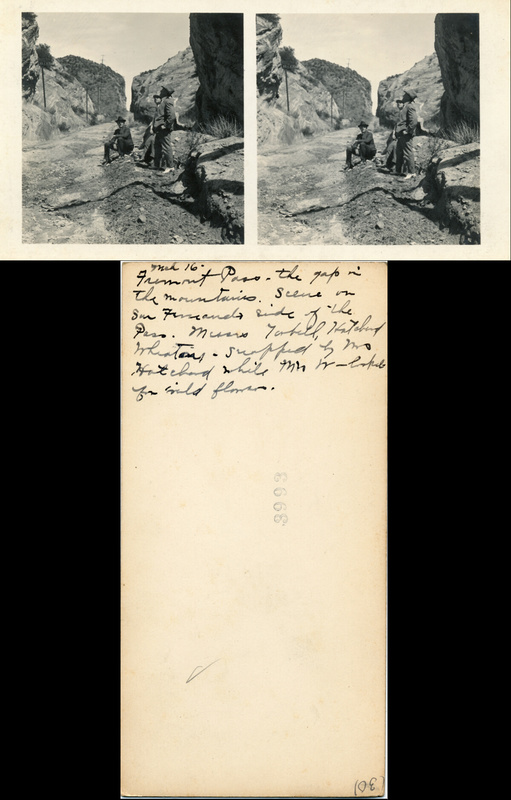 Mch 16-
Fremont Pass - the gap in
the mountains. Scene on
San Fernando side of the
Pass. Messrs Torbell, Hotchard
Wheaton - snapped by Mrs
Hotchard while Mrs W - looked
for wild flowers.
3993
(30)